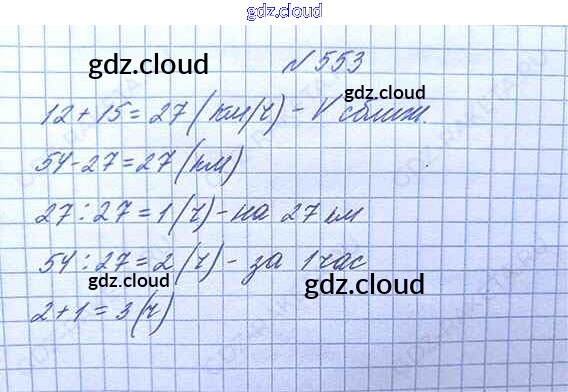 gdz.cloud
gdz.cloud
№ 553
gdz.cloud
12 + 15 = 27 (км/ч) - V сближ.
54 - 27 = 27 (км)
27 : 27 = 1 (ч) - на 27 км
54 : 27 = 2 (ч) - за 1 час
gdz.cloud
gdz.cloud
2 + 1 = 3 (ч)